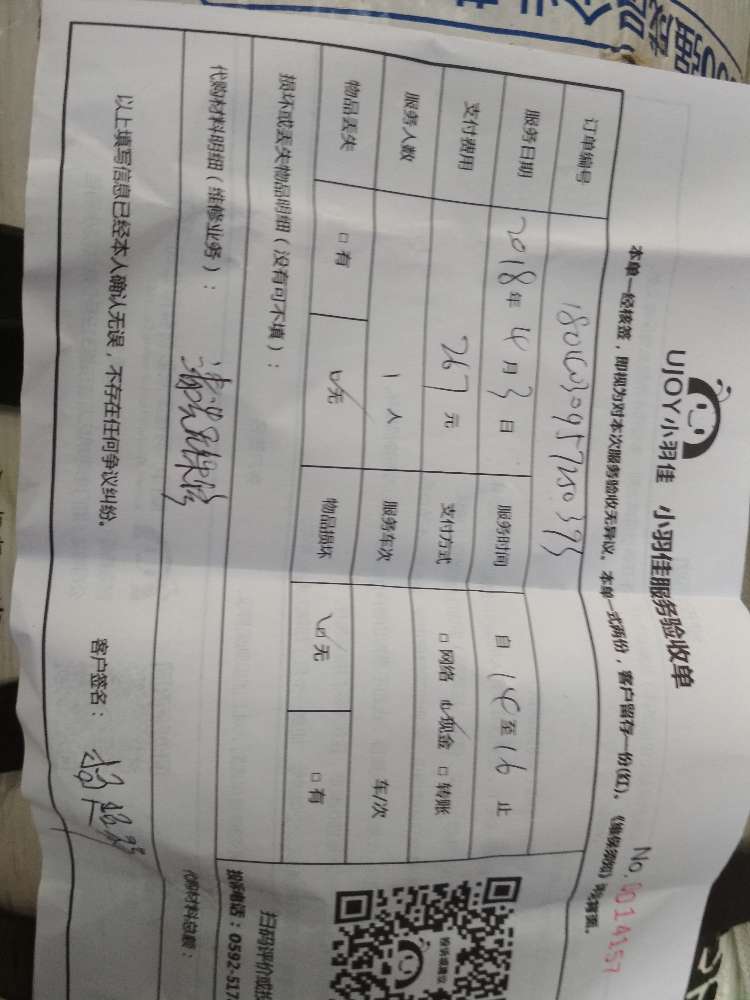 UJOY小羽佳 小羽佳服务验收单
No.0014157
本单一经核签，即视为对本次服务验收无异议。本单一式两份，客户留存一份(红)。《维保须知》
订单编号
服务日期 2018年4月3日 服务时间 自14至16止
支付费用 267元 支付方式 □网络 ☑现金 □转账
服务人数 1人 服务车次 车/次
物品丢失 □有 ☑无 物品损坏 ☑无 □有
损坏或丢失物品明细（没有可不填）：
代购材料明细（维修业务）：
代购材料总额：
以上填写信息已经本人确认无误，不存在任何争议纠纷。
客户签名：
投诉或建议
扫码评价或投
投诉电话：0592-517